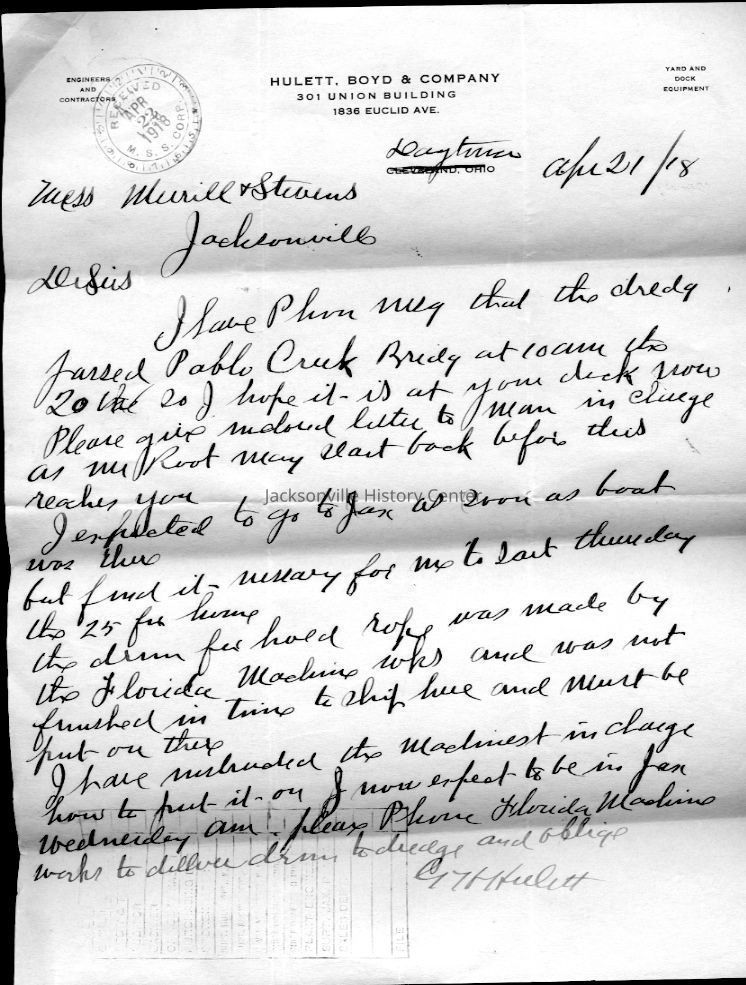 ENGINEERS
AND
CONTRACTORS
HULETT, BOYD & COMPANY
301 UNION BUILDING
1836 EUCLID AVE.
YARD AND
DOCK
EQUIPMENT
RECEIVED
APR
22
1918
M. S. S. CORP.
Daytona
CLEVELAND, OHIO
Apr 21/18
Mess Merrill & Stevens
Jacksonville
Dr Sirs
I have Phon Mesg that the dredg
passed Pablo Creek Bridg at 10 am the
20 the so I hope it is at your dock now
Please give inclosed letter to man in charge
as Mr Root may start back before this
reaches you
I expected to go to Jax as soon as boat
was there
but find it nessary for me to start thursday
the 25 for home
the drum for hoed rope was made by
the Florida Machine wks and was not
finished in time to ship here and must be
put on there
I have instructed the Machinest in charge
how to put it on I now expect to be in Jax
wednesday am. please Phone Florida Machine
works to deliver drum to dredge and oblige
Hulett
FILE
Jacksonville History Center